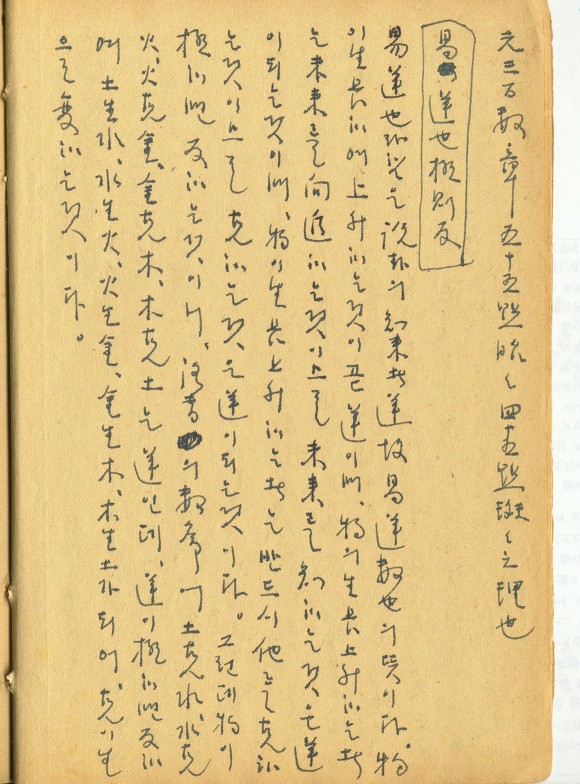 元三百數章 五十五點昭〃 四十五點斑〃之理也
易逆也極則反
易逆也라 함은 說卦의 知來者逆故易逆數也의 뜻이라. 物
이 生長하여 上升하는 것이 곧 逆이며, 物의 生長上升하는 者
는 未來를 向進하는 것이므로 未來를 知하는 것은 逆
이 되는 것이며, 物이 生長上升하는 者는 반드시 他를 克하
는 것이므로 克하는 것은 逆이 되는 것이다. 그런데 物이
極하면 反하는 것이니, 洛書의 數象에 土克水, 水克
火, 火克金, 金克木, 木克土는 逆인데, 逆이 極하면 反하
여 土生水, 水生火, 火生金, 金生木, 木生土가 되어 克이 生
으로 變하는 것이다.